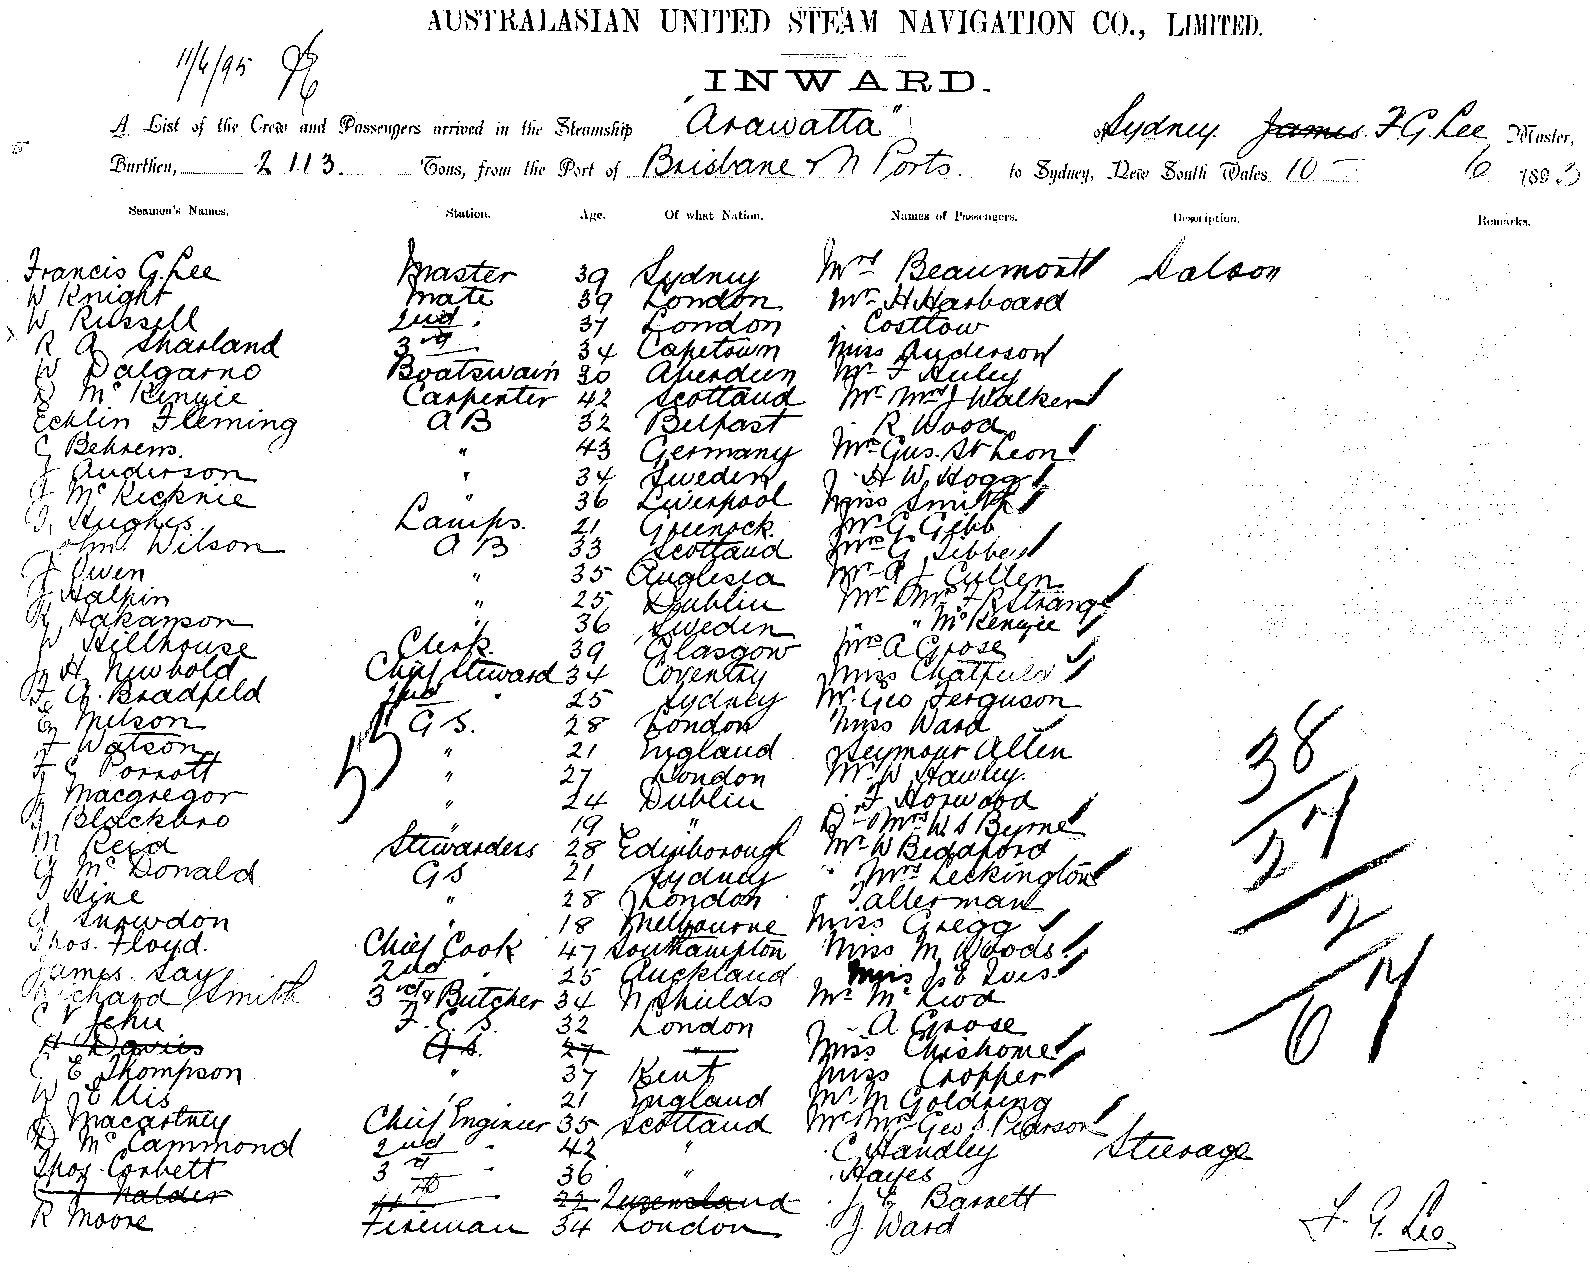 AUSTRALASIAN UNITED STEAM NAVIGATION CO., LIMITED.
11/6/95
INWARD.
A List of the Crew and Passengers arrived in the Steamship "Arawatta" of Sydney James F G Lee Master,
Burthen, 2113. Tons, from the Port of Brisbane & N Ports. to Sydney, New South Wales 10 6 1893
Seamen's Names. Station. Age. Of what Nation. Names of Passengers. Description. Remarks.
Francis G. Lee Master 39 Sydney Mrs Beaumont Saloon
W Knight Mate 39 London Mr H Harboard
W Russell 2nd " 37 London " Costlow
R A Sharland 3rd 34 Capetown Miss Anderson
W Dalgarno Boatswain 30 Aberdeen Mr F Huley
D McKenzie Carpenter 42 Scotland Mr Mrs J Walker
Echlin Fleming A B 32 Belfast " R Wood
C Behrens. " 43 Germany Mrs Gus. St Leon
J Anderson " 34 Sweden " H W Hogg
J McKechnie " 36 Liverpool Miss Smith
Hughes. Lamps. 21 Greenock. Mr G Gebb
John Wilson A B 33 Scotland Mrs G Gibbes
J Owen " 35 Anglesea Mr A J Cullen
J Halpin " 25 Dublin Mr & Mrs F R Strange
Hakanson " 36 Sweden " " McKenzie
W Hillhouse Clerk. 39 Glasgow Mrs A Grose
H Newbold Chief Steward 34 Coventry Miss Chatfield
F G. Bradfield 2nd " 25 Sydney Mr Geo Ferguson
E Milson G S. 28 London Miss Ward
F Watson " 21 England Seymour Allen
F C Porrott " 27 London Mr W Hawley.
J Macgregor " 24 Dublin " F Horwood
J Blackbro " 19 " Dr & Mrs W S Byrne
M Reid Stewardess 28 Edinborough Mr W Bedford
G McDonald G S 21 Sydney " Mrs Leckington
J Hine " 28 London " Tallerman
G Snowdon " 18 Melbourne Miss Gregg
Thos. Floyd. Chief Cook 47 Southampton Miss M Woods
James. Say 2nd " 25 Auckland Miss
Richard Smith 3rd & Butcher 34 N Shields Mr McLeod
C V Jehu F. C. S. 32 London " A Grose
H Davis G S. 27 " Miss Chisholme
C E Thompson " 37 Kent Miss Cropper
W Ellis " 21 England Mr M Goldring
J Macartney Chief Engineer 35 Scotland Mr Mrs Geo S Pearson
D McCammond 2nd " 42 " C Handley Steerage
Thos Corbett 3rd " 36 " " Hayes
Nalder 4th " 22 Queensland J C Barrett
R Moore Fireman 34 London J Ward
38
27
2
67
F. G. Lee